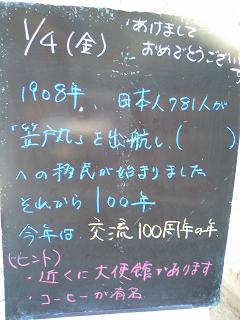 1/4(金)
あけまして
おめでとうござい
1908年、日本人781人が
「笠戸丸」を出航し、( )
への移民が始まりました
それから100年
今年は、交流100周年の年
(ヒント)
・近くに大使館があります
・コーヒーが有名